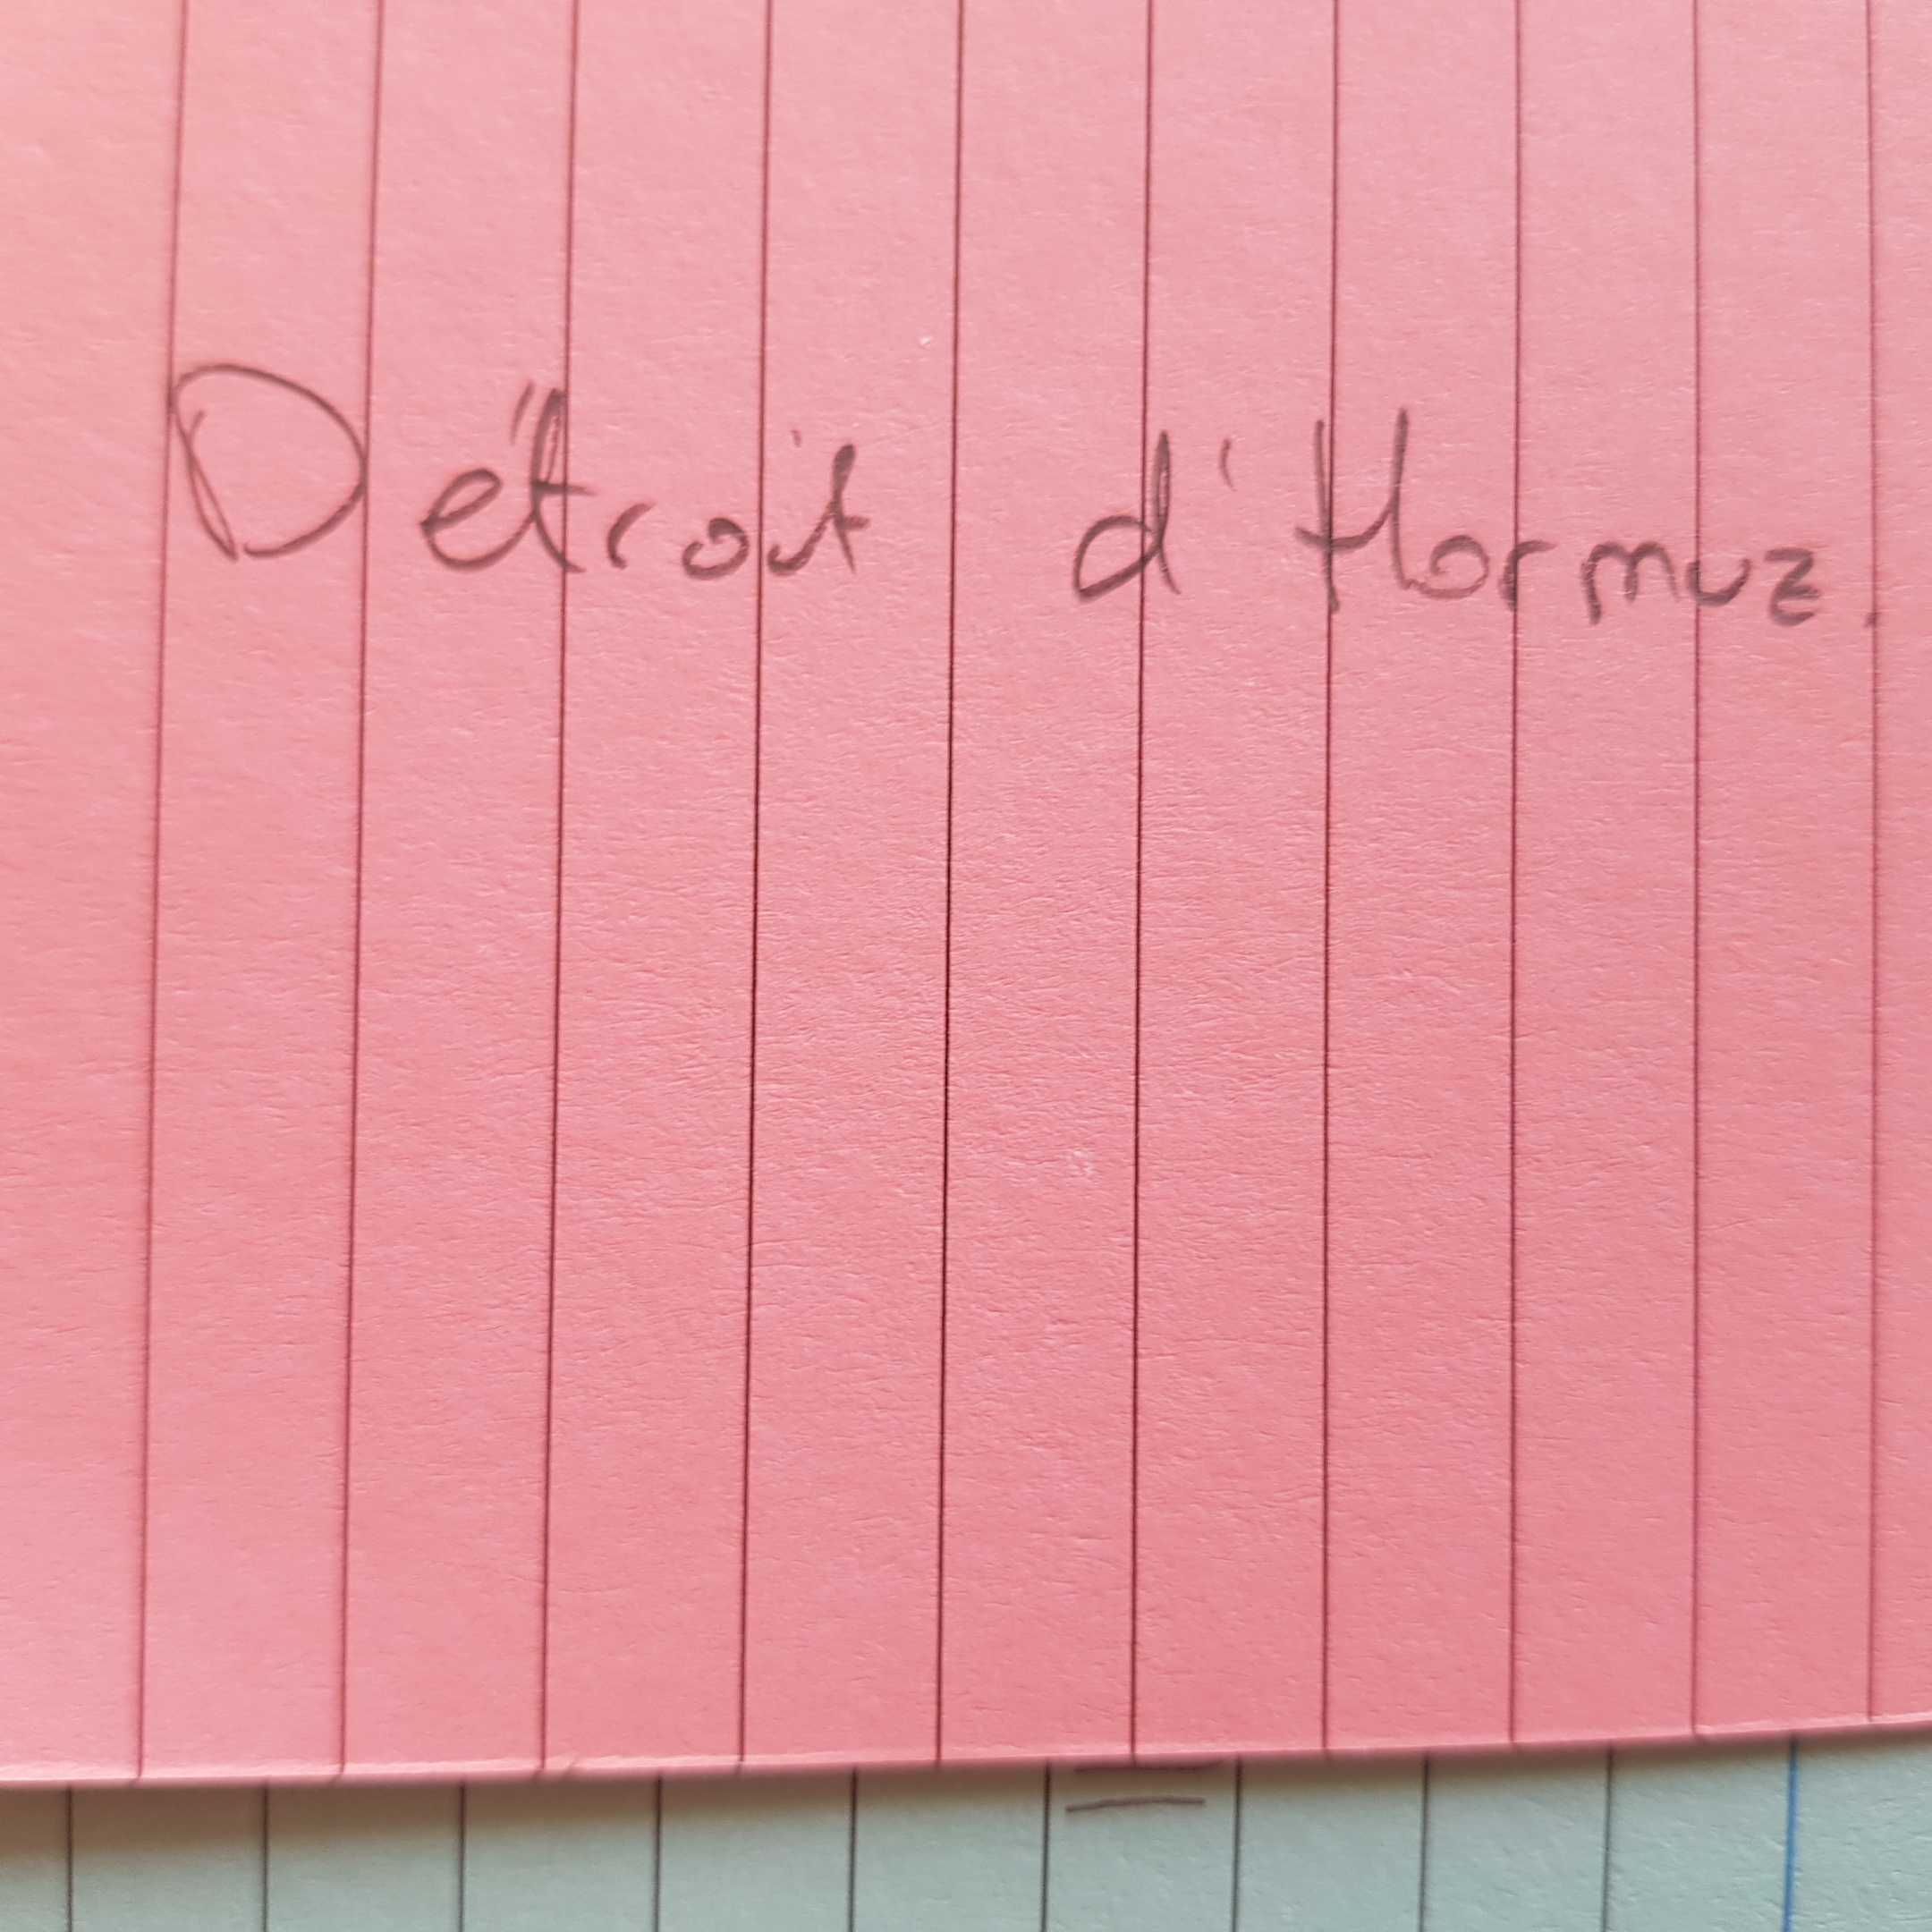 Détroit d'Hormuz.